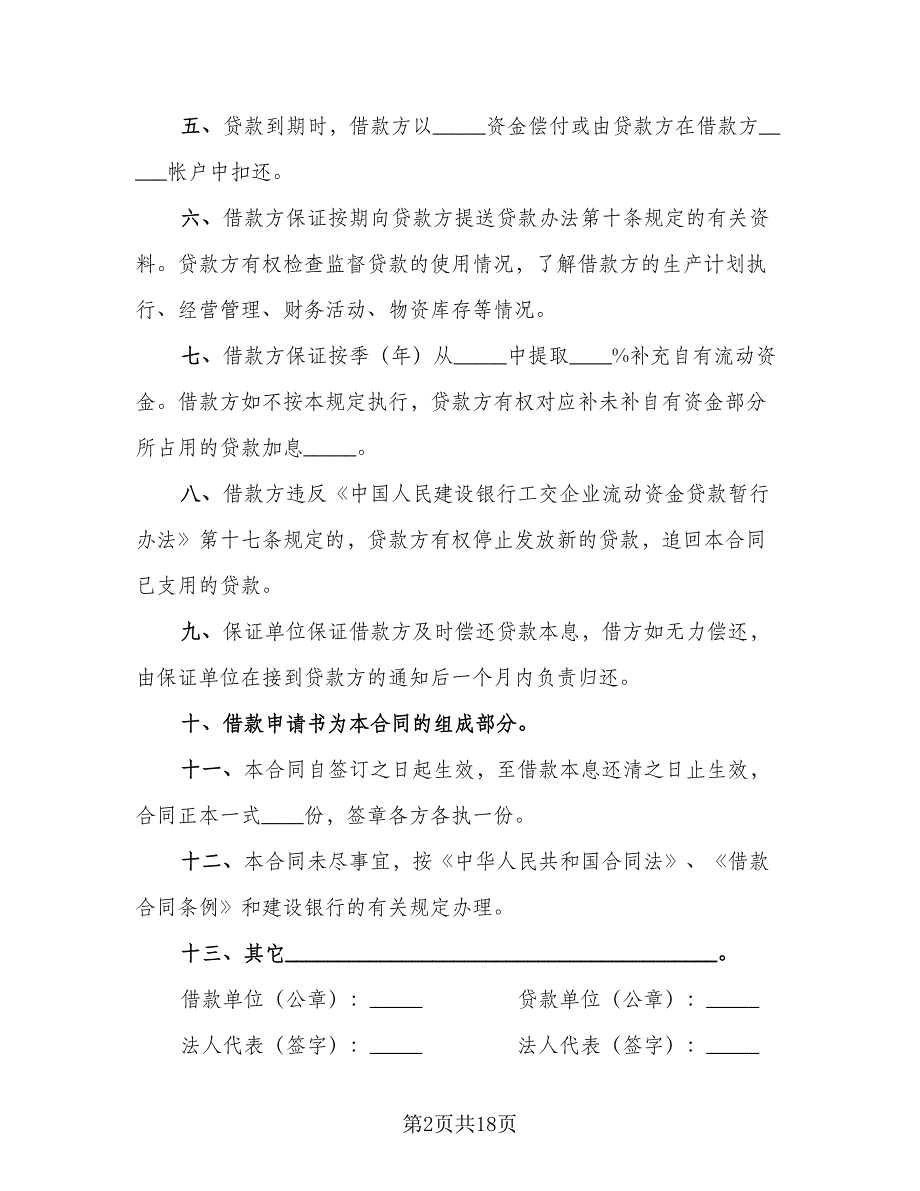 五、贷款到期时，借款方以_____资金偿付或由贷款方在借款方__
___帐户中扣还。
六、借款方保证按期向贷款方提送贷款办法第十条规定的有关资
料。贷款方有权检查监督贷款的使用情况，了解借款方的生产计划执
行、经营管理、财务活动、物资库存等情况。
七、借款方保证按季（年）从_____中提取____%补充自有流动资
金。借款方如不按本规定执行，贷款方有权对应补未补自有资金部分
所占用的贷款加息_____。
八、借款方违反《中国人民建设银行工交企业流动资金贷款暂行
办法》第十七条规定的，贷款方有权停止发放新的贷款，追回本合同
已支用的贷款。
九、保证单位保证借款方及时偿还贷款本息，借方如无力偿还，
由保证单位在接到贷款方的通知后一个月内负责归还。
十、借款申请书为本合同的组成部分。
十一、本合同自签订之日起生效，至借款本息还清之日止生效，
合同正本一式____份，签章各方各执一份。
十二、本合同未尽事宜，按《中华人民共和国合同法》、《借款
合同条例》和建设银行的有关规定办理。
十三、其它_________________________________________。
借款单位（公章）：_____ 贷款单位（公章）：_____
法人代表（签字）：_____ 法人代表（签字）：_____
第2页共18页